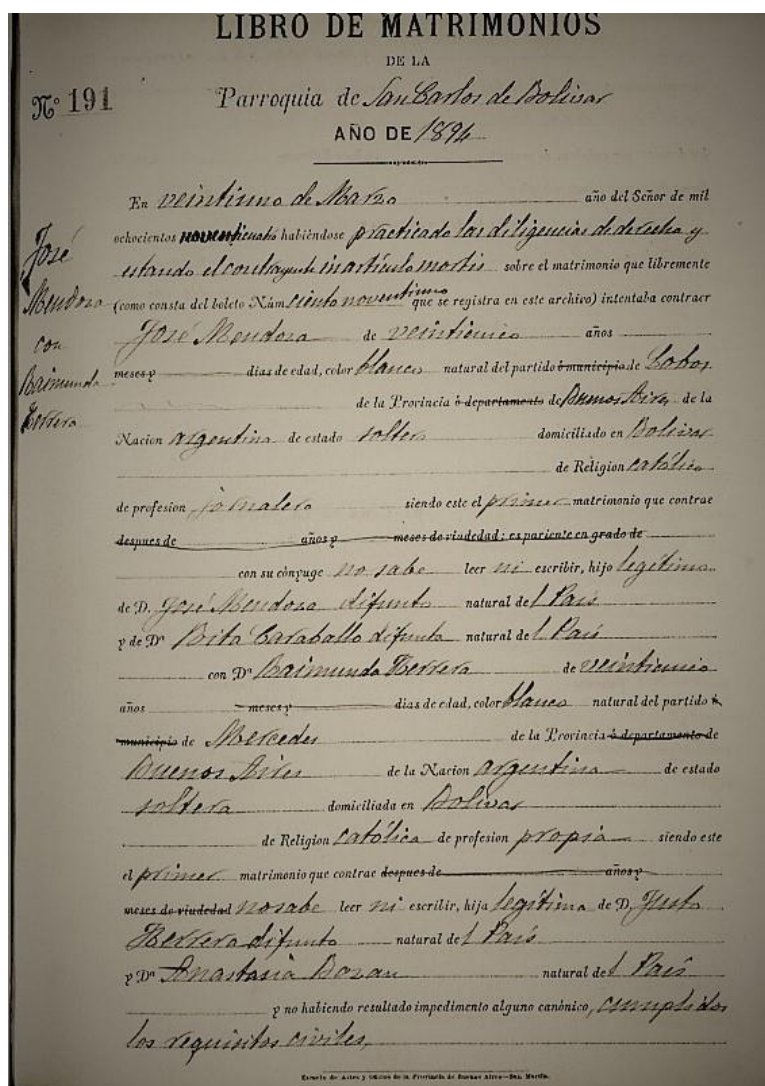 LIBRO DE MATRIMONIOS
DE LA
Nº 191
Parroquia de San Carlos de Bolivar
AÑO DE 1894
José
Mendoza
con
Raimunda
Herrera
En veintiuno de Marzo año del Señor de mil
ochocientos noventicuatro habiéndose practicado las diligencias de derecho y
estando el contrayente in artículo mortis sobre el matrimonio que libremente
(como consta del boleto Núm ciento noventiuno que se registra en este archivo) intentaba contraer
José Mendoza de veinticinco años
meses y dias de edad, color blanco natural del partido ó municipio de Lobos
de la Provincia ó departamento de Buenos Aires de la
Nacion argentina de estado soltero domiciliado en Bolivar
de Religion católica
de profesion jornalero siendo este el primer matrimonio que contrae
despues de años y meses de viudedad; es pariente en grado de
con su cónyuge no sabe leer ni escribir, hijo legítimo
de D. José Mendoza difunto natural del Pais
y de Dª Rita Caraballo difunta natural del Pais
con Dª Raimunda Herrera de veinticinco
años meses y dias de edad, color blanco natural del partido ó
municipio de Mercedes de la Provincia ó departamento de
Buenos Aires de la Nacion argentina de estado
soltera domiciliada en Bolivar
de Religion católica de profesion propia siendo este
el primer matrimonio que contrae despues de años y
meses de viudedad no sabe leer ni escribir, hija legítima de D. Justo
Herrera difunto natural del Pais
y Dª Anastasia Bazan natural del Pais
y no habiendo resultado impedimento alguno canónico, cumplidos
los requisitos civiles,
Escuela de Artes y Oficios de la Provincia de Buenos Aires—San Martin.